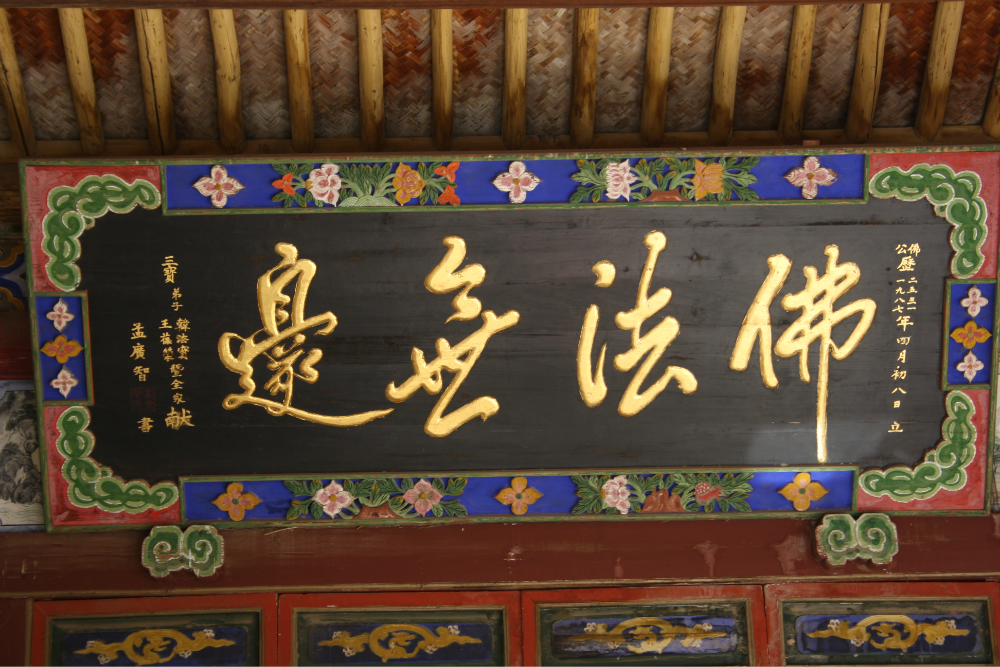 佛法無邊
佛歷二五三一
公歷一九八七年四月初八日立
三寶弟子韓法寶
王蓮榮暨全家献
孟廣智書